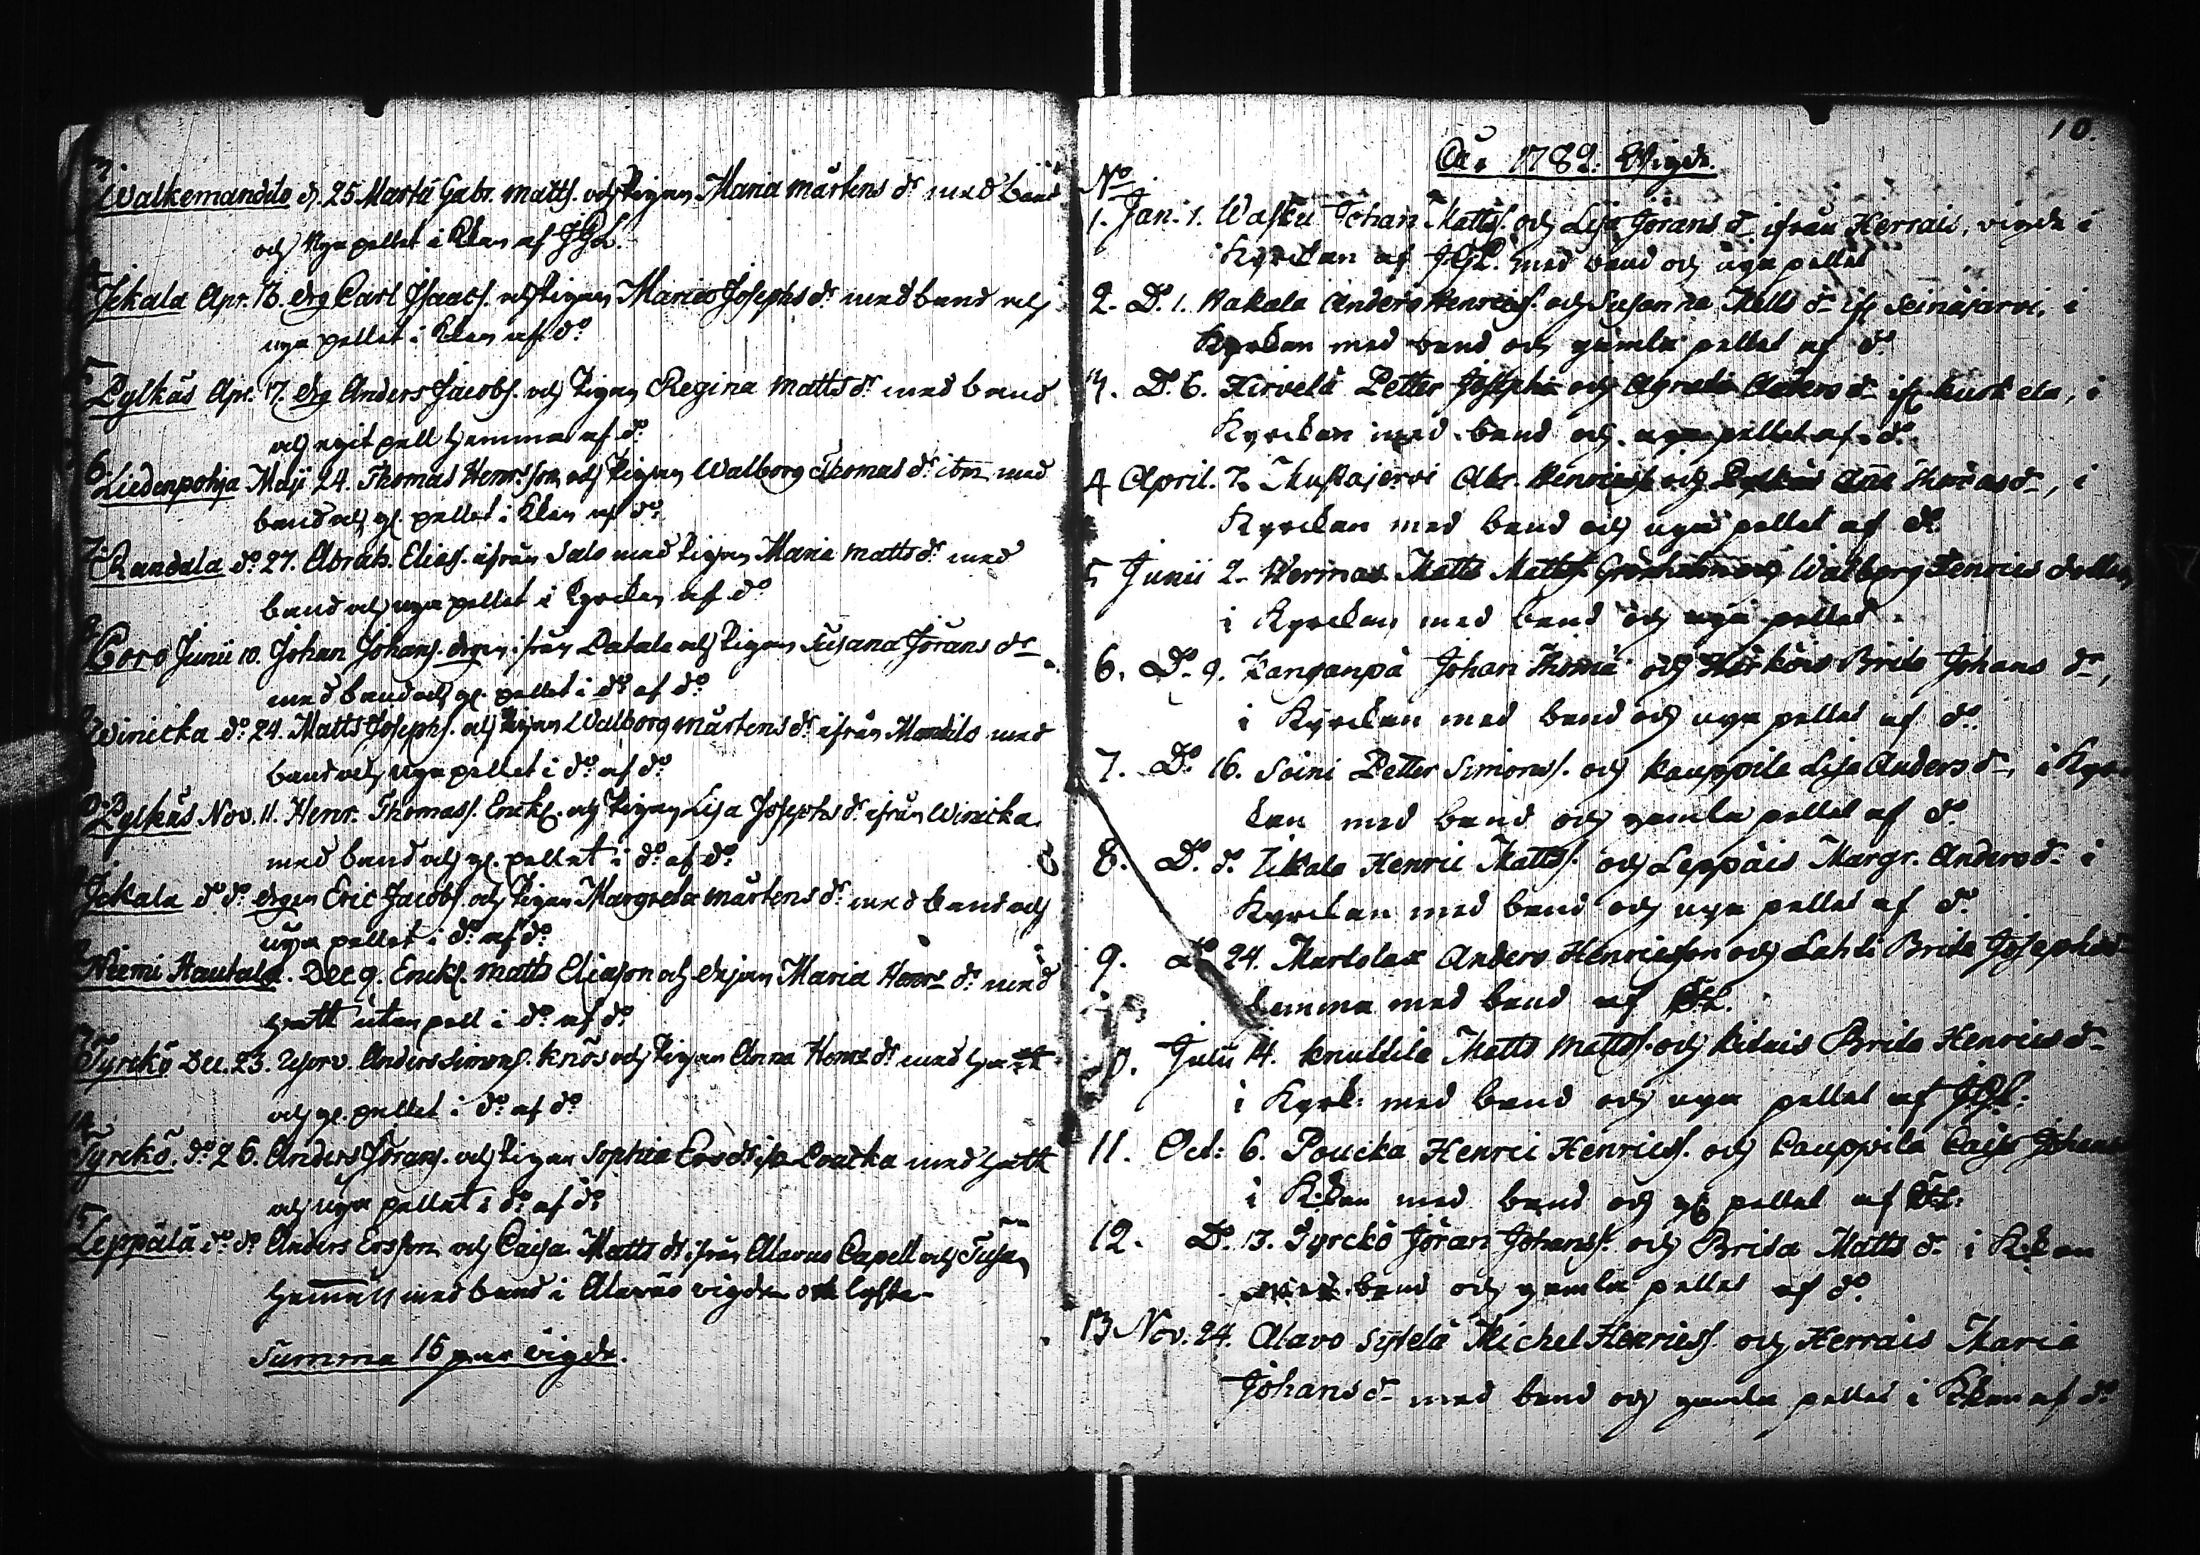 3. Walkemandilo d. 25 Martii Gabr. Matts. och Pigan Maria Mårtens dr med band
och nya pellet i Kkan af JGL.
Jckala Apr. 13. drg Carl Isaacs. och Pigan Maria Josephs dr med band och
nya pellet i Kkan af do
5. Pylkäs Apr. 17. drg Anders Jacobs. och Pigan Regina Matts dr med band
och pell hemma af do
6. Liedenpohja Maji 24. Thomas Henrsson och Pigan Walborg Thomas dr med
band och gl. pellet i Kkan af do
7. Randala do 27. Abrah. Elias. ifrån Salo med Pigan Maria Matts dr med
band och nya pellet i Kyrckan af do
Coro Junii 10. Johan Johans. drgen ifrån Datala och Pigan Susana Jörans dr
med band och gl. pellet i do af do
Winicka do 24. Matts Josephs. och Pigan Walborg Mårtens dr ifrån Mandilo med
band och nya pellet i do af do
Pylkäs Nov. 11. Henr. Thomass. Enckl. och Pigan Lisa Josephs dr ifrån Winicka
med band och gl. pellet i do af do
Jckala do do drgen Eric Jacobs. och Pigan Margreta Mårtens dr med band och
nya pellet i do af do
Niemi Hautala. Dec 9. Enckl. Matts Eliason och Maria Henrs dr med
hatt utan pell i do af do
Tyrckö Dec. 23. Anders Simons. Knös och Pigan Anna Henrs dr med hatt
och gl. pellet i do af do
14. Tyrckö. do 26. Anders Jörans. och Pigan Sophia Ers dr med hatt
och nya pellet i do af do
15. Leppälä do do Anders Ersson och Caisa Matts dr ifrån Alavus Capell och
med band i Alavus vigde och lyste
Summa 15 par vigde.
10.
År 1789. Wigde.
No
1. Jan. 1. Wasku Johan Matts. och Lisa Jörans dr ifrån Herrais, vigde i
Kyrckan af JGL. med band och nya pellet
2. Do 1. Kakala Anders Henrics. och Susanna Matts dr ifr Seinäjarvi, i
Kyrckan med band och gamla pellet af do
3. Do 6. Hirvelä Petter Josephs. och Agneta Anders dr ifr Kurkela, i
Kyrckan med band och nya pellet af do
4 April. 7. Mustajervi Abr. Henrics. och Pylkäs Ana Thomas dr, i
Kyrckan med band och nya pellet af do
5 Junii 2. Matts Matts. Walborg Henrics dotter,
i Kyrckan med band och nya pellet
6. Do 9. Kanganpä Johan Thoma och Härköis Brita Johans dr,
i Kyrckan med band och nya pellet af do
7. Do 16. Soini Petter Simonss. och Kauppila Lisa Anders dr, i Kyrc-
kan med band och gamla pellet af do
8. Do do Henric Matts. och Leppäis Margr. Anders dr i
Kyrckan med band och nya pellet af do
9. Do 24. Martola Anders Henricsson och Lahti Brita Josephs dr
hemma med band af
10. Julii 14. Knuttila Matts Matts. och Brita Henrics dr
i Kyrk. med band och nya pellet af JGL.
11. Oct: 6. Poucka Henric Henrics. och Cauppila Caisa Johans
i K:kan med band och gl pellet af
12. Do 13. Tyrckö Jöran Johanss. och Brita Matts dr i K:kan
med band och gamla pellet af do
13 Nov. 24. Alavo Sistelä Michel Henrics. och Herrais Maria
Johans dr med band och gamla pellet i Kkan af do